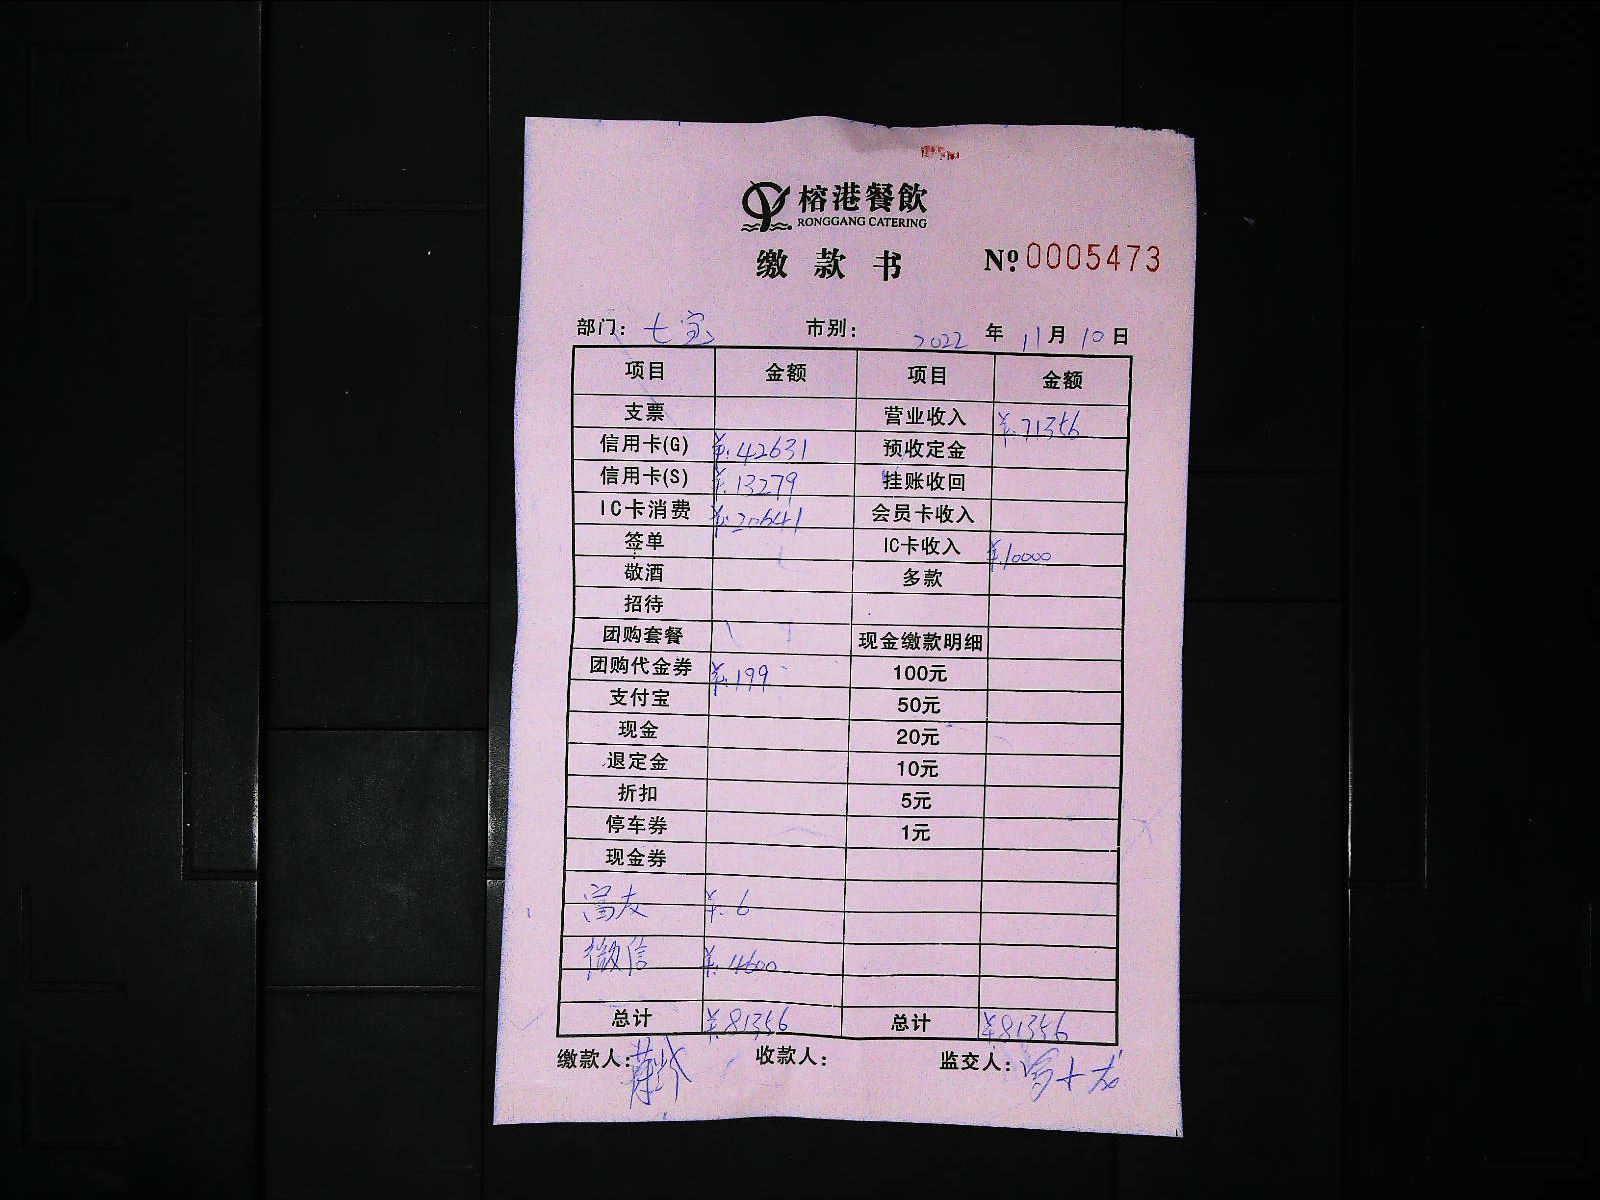 榕港餐飲
RONGGANG CATERING
缴款书 № 0005473
部门: 七宝 市别: 2022 年 11 月 10 日
项目 金额 项目 金额
支票 营业收入 ¥71356
信用卡(G) ¥42631 预收定金
信用卡(S) ¥13279 挂账收回
IC卡消费 ¥20641 会员卡收入
签单 IC卡收入 ¥10000
敬酒 多款
招待
团购套餐 现金缴款明细
团购代金券 ¥199 100元
支付宝 50元
现金 20元
退定金 10元
折扣 5元
停车券 1元
现金券
富友 ¥6
微信 ¥4600
总计 ¥81356 总计 ¥81356
缴款人: 收款人: 监交人: